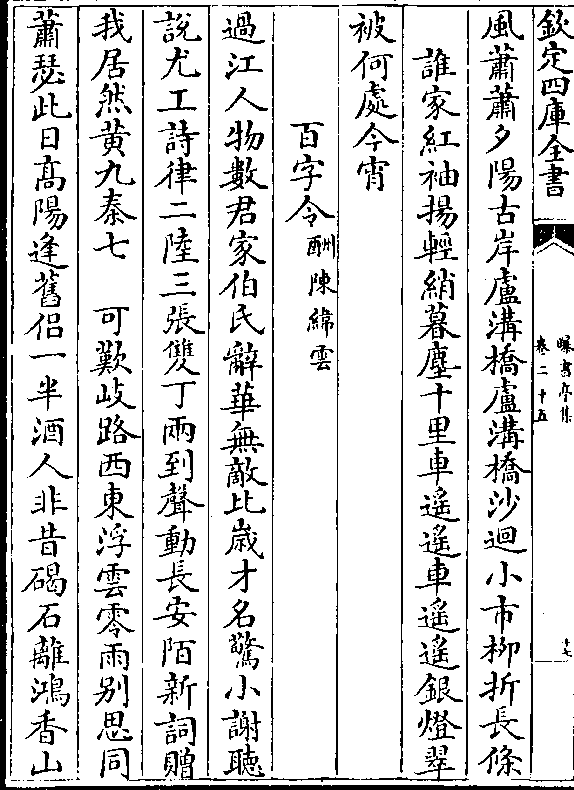 欽定四庫全書
曝書亭集
卷二十五
十七
風蕭蕭夕陽古岸盧溝橋盧溝橋沙迴小市栁折長條
誰家紅袖揚輕綃暮塵十里車遥遥車遥遥銀燈翠
被何處今宵
百字令酬陳緯雲
過江人物數君家伯氏辭華無敵比嵗才名驚小謝聽
說尤工詩律二陸三張雙丁兩到聲動長安陌新詞贈
我居然黄九秦七　可歎歧路西東浮雲零雨别思同
蕭瑟此日髙陽逢舊侣一半酒人非昔碣石離鴻香山